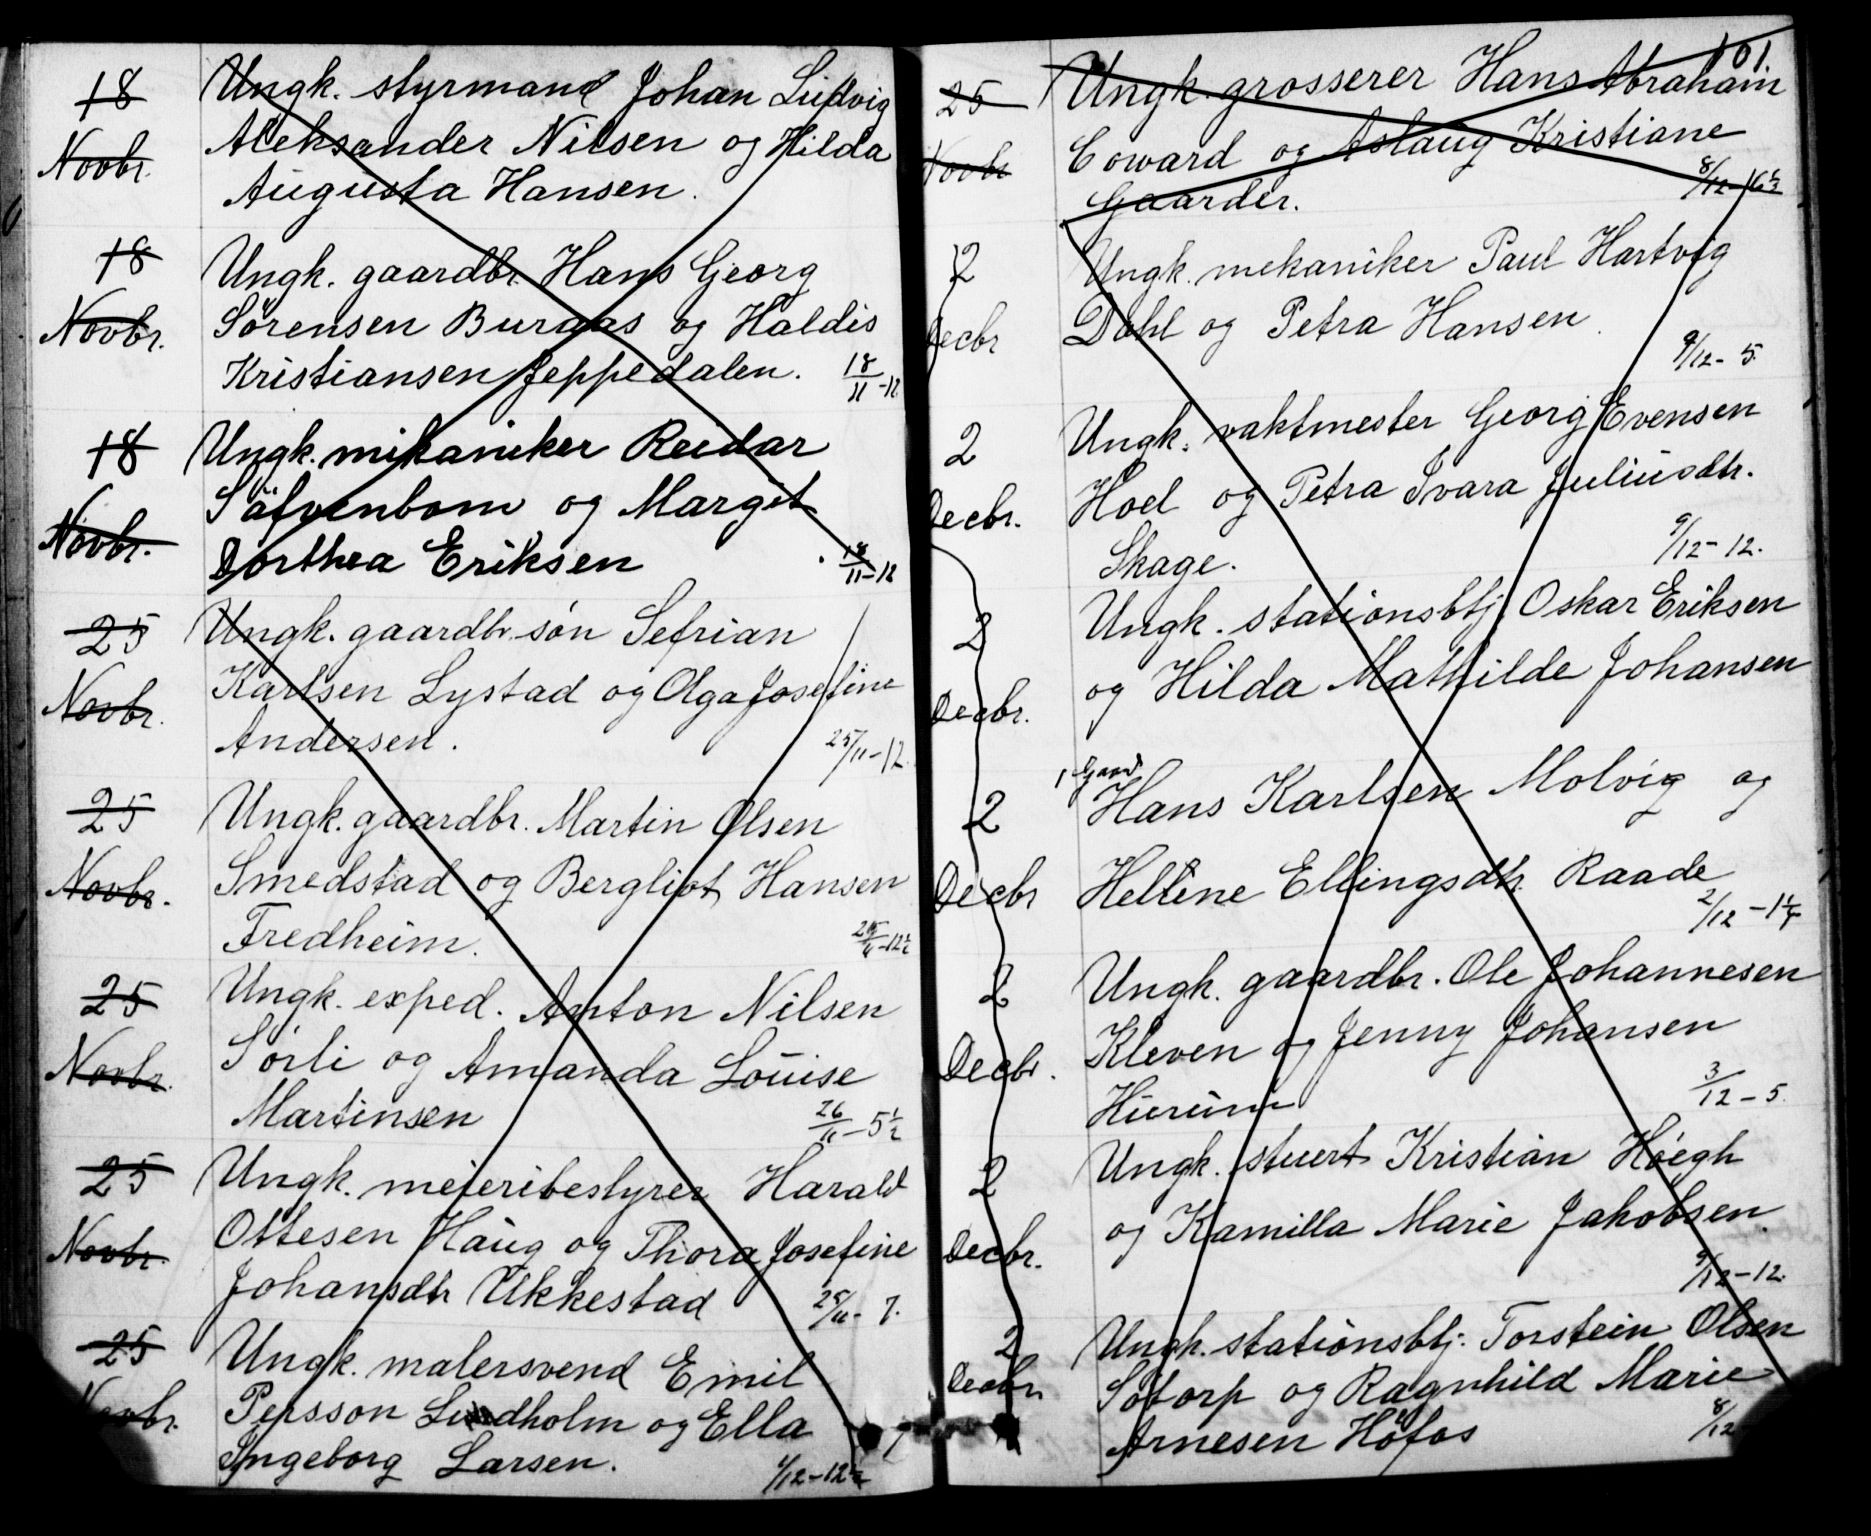 18 Ungk. styrmand Johan Ludvig
Novbr. Aleksander Nilsen og Hilda
Augusta Hansen.
18 Ungk. gaardbr. Hans Georg
Novbr. Sørensen Buraas og Haldis
Kristiansen Jeppedalen. 18/11-12
18 Ungk. mekaniker Reidar
Novbr. Säfvenbom og Margit
Dorthea Eriksen 18/11-12
25 Ungk. gaardbr. søn Sefrian
Novbr. Karlsen Lystad og Olga Josefine
Andersen. 25/11-12
25 Ungk. gaardbr. Martin Olsen
Novbr. Smedstad og Bergliot Hansen
Fredheim. 25/11-12½
25 Ungk. exped. Anton Nilsen
Novbr. Sørli og Amanda Louise
Martinsen 26/11-5½
25 Ungk. meieribestyrer Harald
Novbr. Ottesen Haug og Thora Josefine
Johansdtr Ukkestad 25/11-7.
25 Ungk. malersvend Emil
Novbr. Persson Lindholm og Ella
Ingeborg Larsen. 1/12-12½
101.
25 Ungk. grosserer Hans Abraham
Novbr Coward og Aslaug Kristiane
Gaarder. 8/12-6½
2 Ungk. mekaniker Paul Hartvig
Decbr Dahl og Petra Hansen.
9/12-5
2 Ungk. vaktmester Georg Evensen
Decbr. Hoel og Petra Ivara Juliusdtr.
Skage. 9/12-12.
2 Ungk. stationsbtj. Oskar Eriksen
Decbr. og Hilda Mathilde Johansen
Gaard
2 Hans Karlsen Molvig og
Decbr Helline Ellingsdtr. Raade
2/12-1¼
2 Ungk. gaardbr. Ole Johannesen
Decbr. Kleven og Jenny Johansen
Hurum 3/12-5.
2 Ungk. stuert Kristian Høegh
Decbr. og Kamilla Marie Jakobsen.
9/12-12.
2 Ungk. stationsbtj. Torstein Olsen
Decbr. Sotorp og Ragnhild Marie
Arnesen Höfos 8/12